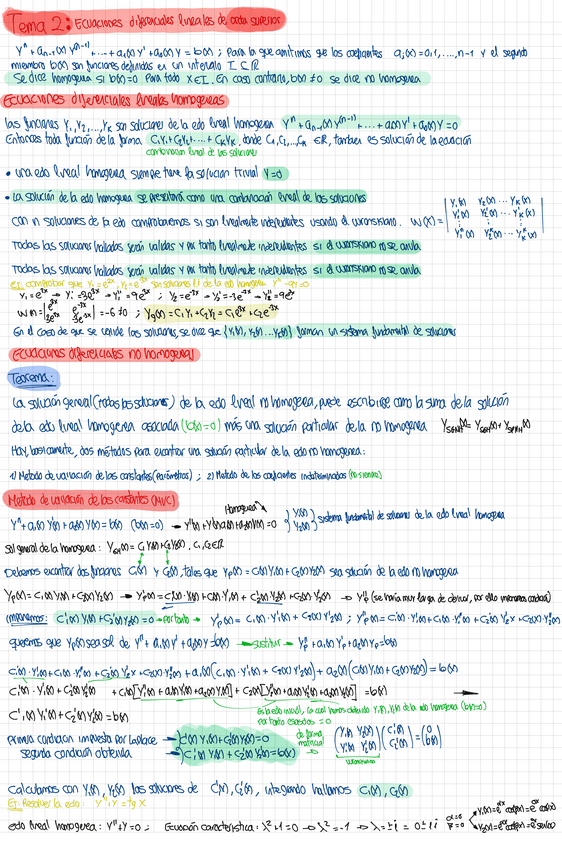 Tema 2: Ecuaciones diferenciales lineales de orden superior
yⁿ + aₙ₋₁(x) y⁽ⁿ⁻¹⁾ + ... + a₁(x) y' + a₀(x) y = b(x) ; Para lo que admitimos que los coeficientes aⱼ(x) = 0,1,....,n-1 y el segundo
miembro b(x) son funciones definidas en un intervalo I ⊆ ℝ
Se dice homogenea si b(x)=0 para todo x∈I. En caso contrario, b(x) ≠ 0 se dice no homogenea
Ecuaciones diferenciales lineales homogeneas
Las funciones Y₁, Y₂,..., Yₖ son soluciones de la edo lineal homogenea yⁿ + aₙ₋₁(x) y⁽ⁿ⁻¹⁾ + ... + a₁(x) y' + a₀(x) y = 0
Entonces toda función de la forma C₁Y₁ + C₂Y₂ + .... + CₖYₖ, donde C₁, C₂,.., Cₖ ∈ ℝ, tambien es solución de la ecuación
combinacion lineal de las soluciones
• una edo lineal homogenea, siempre tiene la solucion trivial y=0
• La solución de la edo homogenea se presentará como una combinacion lineal de las soluciones
Con n soluciones de la edo comprobaremos si son linealmente independientes usando el wronskiano. W(x) = | Y₁(x) Y₂(x) ... Yₖ(x)
Y₁'(x) Y₂'(x) ... Yₖ'(x)
Y₁ⁿ(x) Y₂ⁿ(x) ... Yₖⁿ(x) |
Todas las soluciones halladas serán validas y por tanto linealmente independientes si el wronskiano no se anula.
Todas las soluciones halladas serán validas y por tanto linealmente independientes si el wronskiano no se anula.
Ej: comprobar que Y₁ = e³ˣ, Y₂ = e⁻³ˣ son soluciones li de la edo homogenea y'' - 9y = 0
Y₁ = e³ˣ → Y₁' = 3e³ˣ → Y₁'' = 9e³ˣ ; Y₂ = e⁻³ˣ → Y₂' = -3e⁻³ˣ → Y₂'' = 9e⁻³ˣ
W(x) = | e³ˣ e⁻³ˣ
3e³ˣ -3e⁻³ˣ | = -6 ≠ 0 ; Yg(x) = C₁Y₁ + C₂Y₂ = C₁e³ˣ + C₂e⁻³ˣ
En el caso de que se validen las soluciones, se dice que {Y₁(x), Y₂(x) ... Yₖ(x)} forman un sistema fundamental de soluciones
Ecuaciones diferenciales no homogeneas
Teorema:
La solución general (todas las soluciones) de la edo lineal no homogenea, puede escribirse como la suma de la solución
de la edo lineal homogenea asociada (b(x)=0) más una solución particular de la no homogenea
Hay, basicamente, dos métodos para encontrar una solución particular de la edo no homogenea:
1) Metodo de variación de las constantes (Parámetros) ; 2) Metodo de los coeficientes indeterminados (no siempre)
Metodo de variación de las constantes (MVC)
Homogenea
y'' + a₁(x) y'(x) + a₀(x) y(x) = b(x) (b(x)=0) → y''(x) + y'(x)a₁(x) + a₀(x)y(x) = 0 { Y₁(x)
Y₂(x) } sistema fundamental de soluciones de la edo lineal homogenea
Sol general de la homogenea : Y_GH(x) = C₁Y₁(x) + C₂Y₂(x), C₁, C₂ ∈ ℝ
Debemos encontrar dos funciones C₁(x) y C₂(x), tales que Yp(x) = C₁(x)Y₁(x) + C₂(x)Y₂(x) sea solución de la edo no homogenea
Yp(x) = C₁(x) Y₁(x) + C₂(x) Y₂(x) → Y'p(x) = C₁'(x)·Y₁(x) + C₁(x)·Y₁'(x) + C₂'(x) Y₂(x) + C₂(x)·Y₂'(x) → Y''p (se haría muy larga de derivar, por ello imponemos condición)
Imponemos: C₁'(x) Y₁(x) + C₂'(x) Y₂(x) = 0 → por tanto → Y'p(x) = C₁(x)·Y₁'(x) + C₂(x) Y₂'(x) ; Y''p(x) = C₁'(x)·Y₁'(x) + C₁(x)·Y₁''(x) + C₂'(x) Y₂'(x) + C₂(x)·Y₂''(x)
queremos que Yp(x) sea sol de y'' + a₁(x) y' + a₀(x) y = b(x) → sustituir → Y''p + a₁(x) Y'p + a₀(x) Yp = b(x)
C₁'(x)·Y₁'(x) + C₁(x)·Y₁''(x) + C₂'(x) Y₂'(x) + C₂(x)·Y₂''(x) + a₁(x)(C₁(x)·Y₁'(x) + C₂(x) Y₂'(x)) + a₀(x)(C₁(x)Y₁(x) + C₂(x)Y₂(x)) = b(x)
C₁'(x)·Y₁'(x) + C₂'(x)Y₂'(x) + C₁(x)[Y₁''(x) + a₁(x)Y₁'(x) + a₀(x)Y₁(x)] + C₂(x)[Y₂''(x) + a₁(x)Y₂'(x) + a₀(x)Y₂(x)] = b(x) →
C₁'(x) Y₁'(x) + C₂'(x) Y₂'(x) = b(x)
por tanto = 0
Primera condicion impuesta por Laplace → C₁'(x) Y₁(x) + C₂'(x) Y₂(x) = 0
segunda condición obtenida → C₁'(x) Y₁'(x) + C₂'(x) Y₂'(x) = b(x)
de forma matricial → ( Y₁(x) Y₂(x)
Y₁'(x) Y₂'(x) ) ( C₁'(x)
C₂'(x) ) = ( 0
b(x) )
wronskiano
Calculamos con Y₁(x), Y₂(x) las soluciones de C₁'(x), C₂'(x), integrando hallamos C₁(x), C₂(x)
Ej: Resolver la edo: y'' + y = tg x
edo lineal homogenea: y'' + y = 0 ; Ecuación caracteristica: λ² + 1 = 0 → λ² = -1 → λ = ± i = 0 ± 1 i